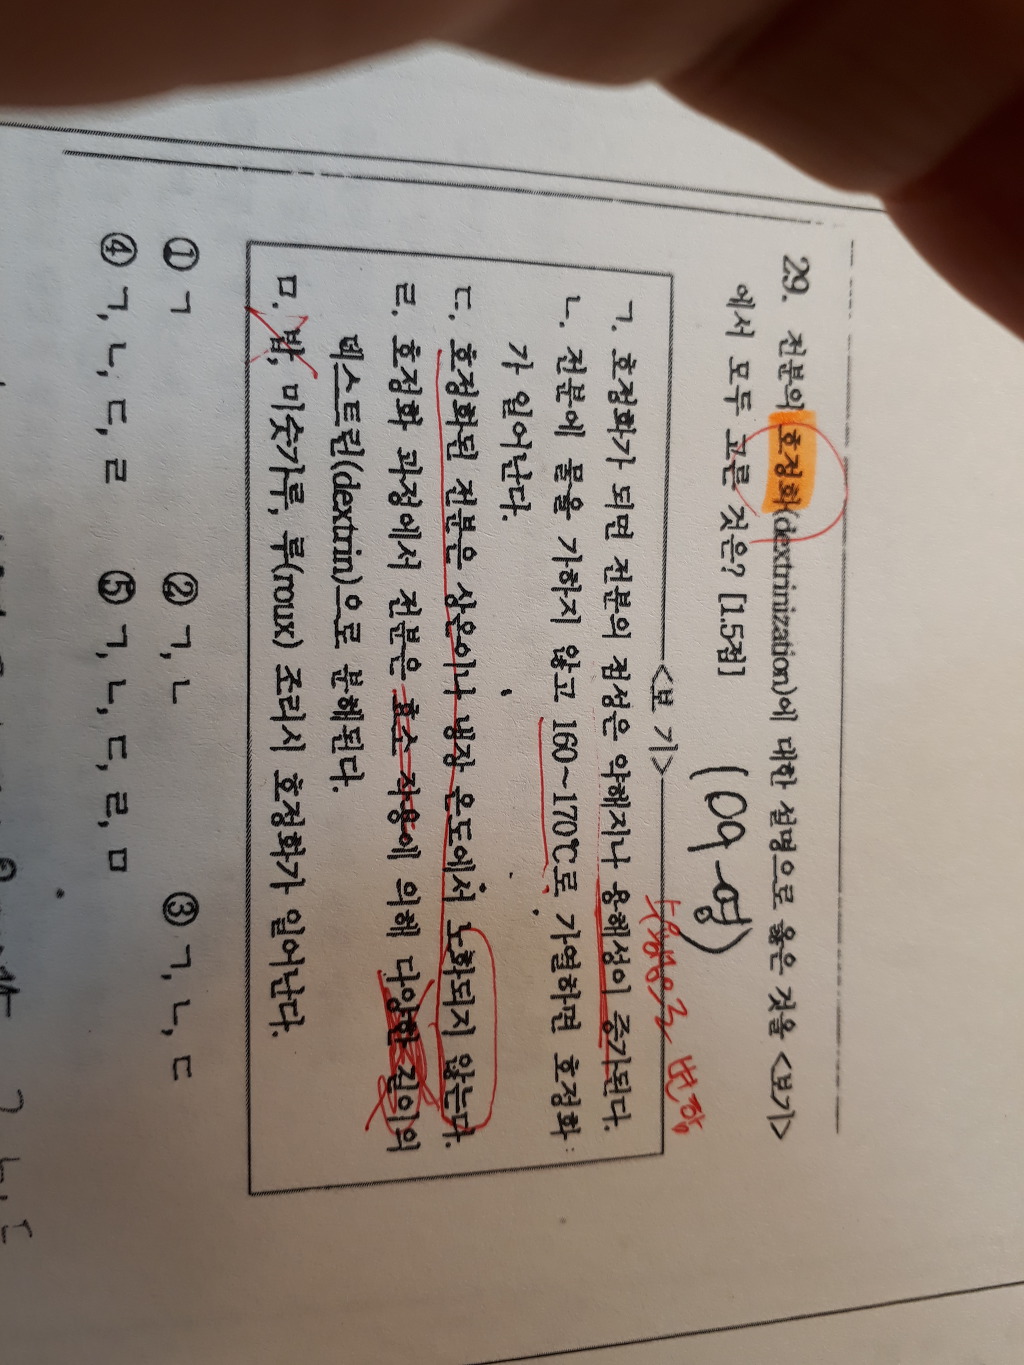 29. 전분의 호정화(dextrinization)에 대한 설명으로 옳은 것을 <보기>
에서 모두 고른 것은? [1.5점]
(09-영)
<보 기>
수용성으로 변함
ㄱ. 호정화가 되면 전분의 점성은 약해지나 용해성이 증가된다.
ㄴ. 전분에 물을 가하지 않고 160~170℃로 가열하면 호정화
가 일어난다.
ㄷ. 호정화된 전분은 상온이나 냉장 온도에서 노화되지 않는다.
ㄹ. 호정화 과정에서 전분은 효소 작용에 의해 다양한 길이의
덱스트린(dextrin)으로 분해된다.
ㅁ. 밥, 미숫가루, 루(roux) 조리시 호정화가 일어난다.
① ㄱ ② ㄱ, ㄴ ③ ㄱ, ㄴ, ㄷ
④ ㄱ, ㄴ, ㄷ, ㄹ ⑤ ㄱ, ㄴ, ㄷ, ㄹ, ㅁ